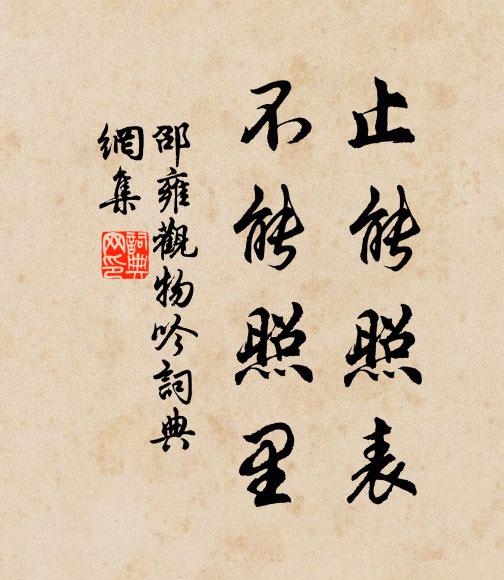 止能照表
不能照里
邵雍觀物吟詞典
網集
詞典
网印